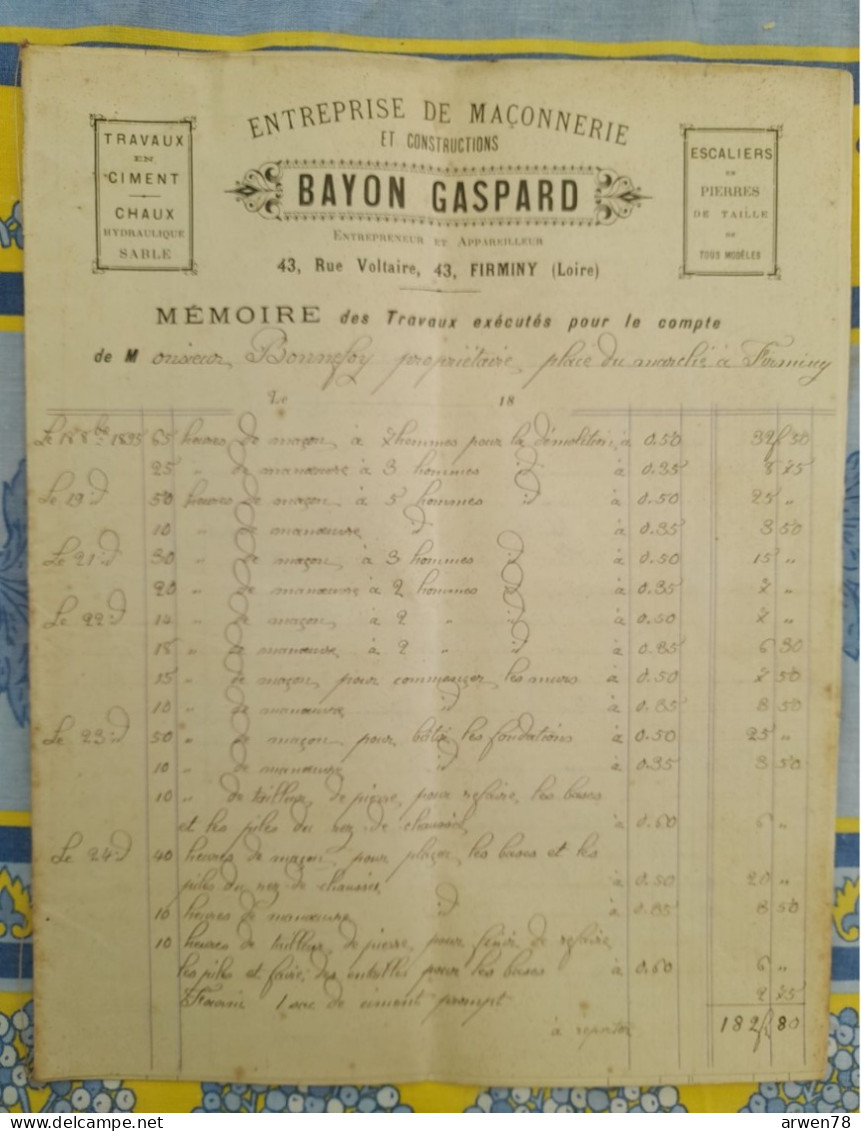 ENTREPRISE DE MAÇONNERIE
ET CONSTRUCTIONS
BAYON GASPARD
ENTREPRENEUR ET APPAREILLEUR
43, Rue Voltaire, 43, FIRMINY (Loire)
TRAVAUX
EN
CIMENT
CHAUX
HYDRAULIQUE
SABLE
ESCALIERS
EN
PIERRES
DE TAILLE
DE
TOUS MODÈLES
MÉMOIRE des Travaux exécutés pour le compte
de Monsieur Bonnefoy propriétaire, place du marché à Firminy
Le 18
Le 18 8bre 1895 65 heures de maçon à 7 hommes pour la démolition à 0.50 32f 50
25 " de manœuvre à 3 hommes id à 0.35 8 75
Le 19 id 50 heures de maçon à 5 hommes id à 0.50 25 "
10 " de manœuvre id à 0.35 3 50
Le 21 id 30 " de maçon à 3 hommes id à 0.50 15 "
20 " de manœuvre à 2 hommes id à 0.35 7 "
Le 22 id 14 " de maçon à 2 " id à 0.50 7 "
18 " de manœuvre à 2 " id à 0.35 6 30
15 " de maçon pour commencer les murs à 0.50 7 50
10 " de manœuvre id à 0.35 3 50
Le 23 id 50 " de maçon pour bâtir les fondations à 0.50 25 "
10 " de manœuvre id à 0.35 3 50
10 " de tailleur de pierre pour refaire les bases
et les piles du rez-de-chaussée à 0.60 6 "
Le 24 id 40 heures de maçon pour placer les bases et les
piles du rez-de-chaussée à 0.50 20 "
10 heures de manœuvre id à 0.35 3 50
10 heures de tailleur de pierre pour finir de refaire
les piles et faire des entailles pour les bases à 0.60 6 "
1 sac de ciment prompt 2 75
à reporter 182f 80
delcampe.net
arwen78